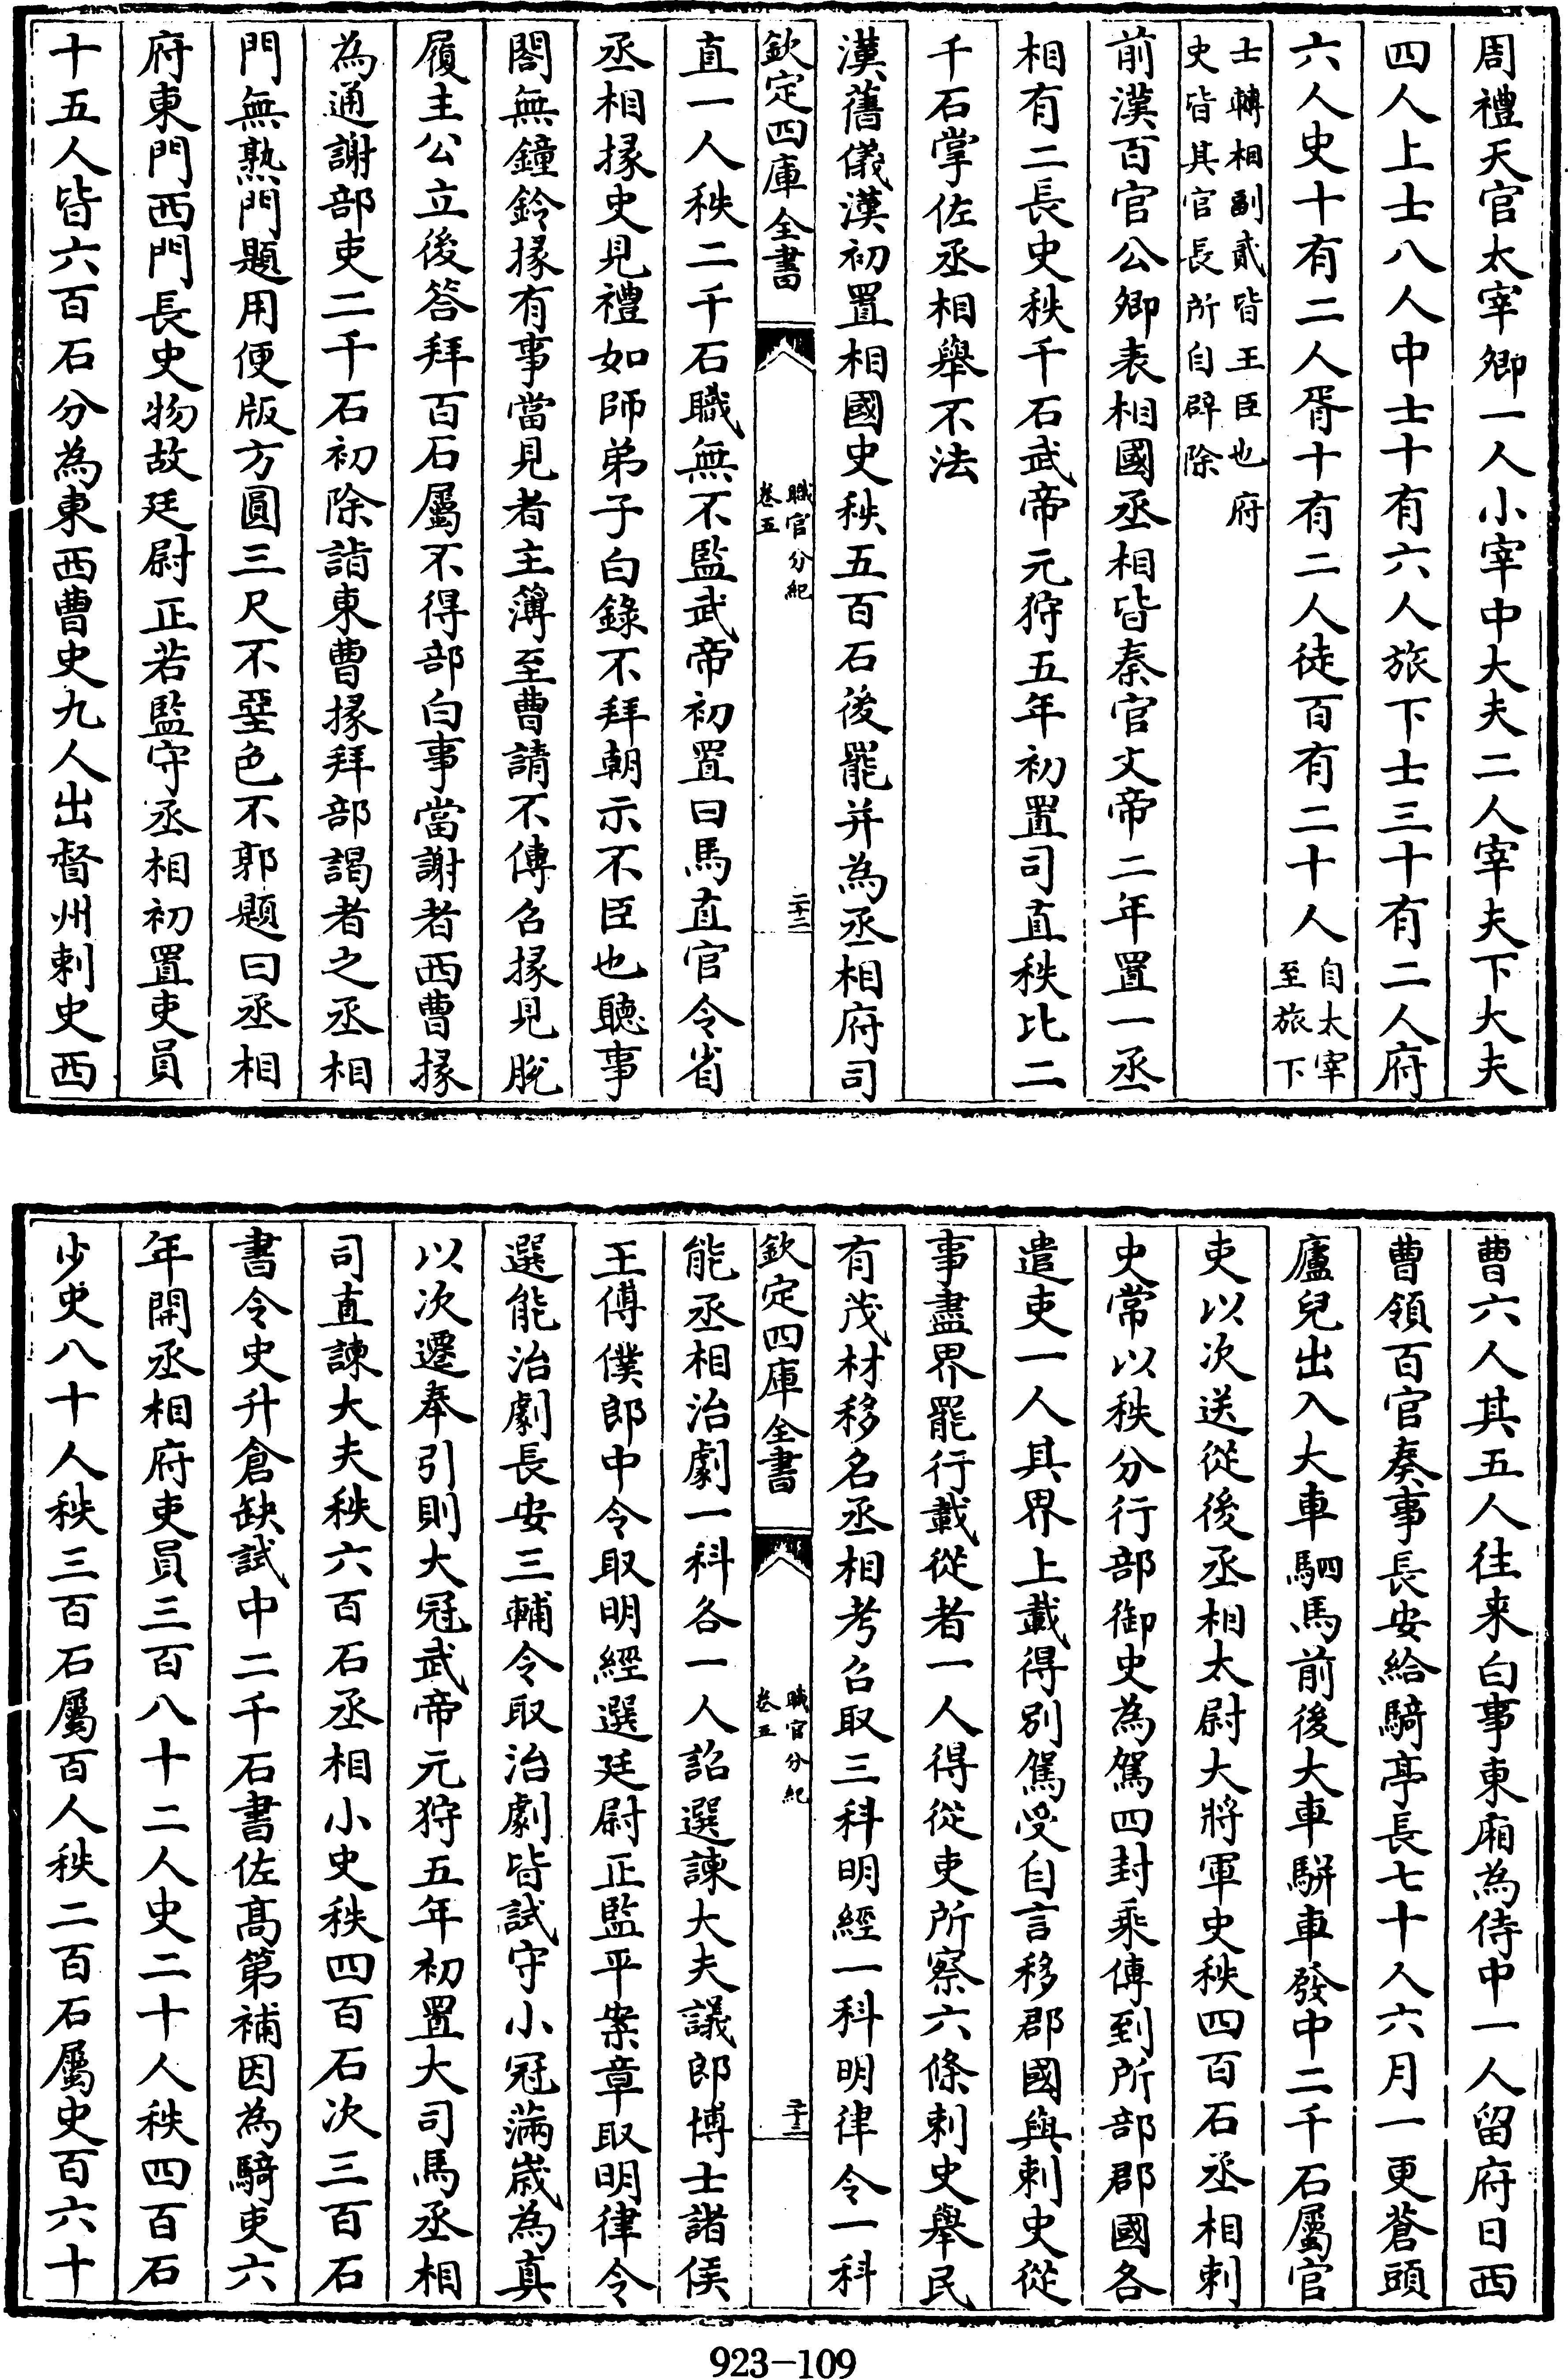 周禮天官太宰卿一人小宰中大夫二人宰夫下大夫
四人上士八人中士十有六人旅下士三十有二人府
六人史十有二人胥十有二人徒百有二十人自太宰
至旅下
士轉相副貳皆王臣也府
史皆其官長所自辟除
前漢百官公卿表相國丞相皆秦官文帝二年置一丞
相有二長史秩千石武帝元狩五年初置司直秩比二
千石掌佐丞相舉不法
漢舊儀漢初置相國史秩五百石後罷并為丞相府司
欽定四庫全書
職官分紀
卷五
二十二
直一人秩二千石職無不監武帝初置曰馬直官令省
丞相掾史見禮如師弟子白錄不拜朝示不臣也聽事
閤無鐘鈴掾有事當見者主簿至曹請不傳召掾見脫
履主公立後答拜百石屬不得部白事當謝者西曹掾
為通謝部吏二千石初除詣東曹掾拜部謁者之丞相
門無熟門題用便版方圓三尺不堊色不郭題曰丞相
府東門西門長史物故廷尉正若監守丞相初置吏員
十五人皆六百石分為東西曹史九人出督州刺史西
曹六人其五人往来白事東廂為侍中一人留府曰西
曹領百官奏事長安給騎亭長七十人六月一更蒼頭
廬兒出入大車駟馬前後大車駢車發中二千石屬官
吏以次送從後丞相太尉大將軍史秩四百石丞相刺
史常以秩分行部御史為駕四封乘傳到所部郡國各
遣吏一人具界上載得別駕受自言移郡國與刺史從
事盡界罷行載從者一人得從吏所察六條刺史舉民
有茂材移名丞相考召取三科明經一科明律令一科
欽定四庫全書
職官分紀
卷五
二十三
能丞相治劇一科各一人詔選諫大夫議郎博士諸侯
王傅僕郎中令取明經選廷尉正監平案章取明律令
選能治劇長安三輔令取治劇皆試守小冠滿歲為真
以次遷奉引則大冠武帝元狩五年初置大司馬丞相
司直諫大夫秩六百石丞相小史秩四百石次三百石
書令史升倉缺試中二千石書佐髙第補因為騎吏六
年開丞相府吏員三百八十二人史二十人秩四百石
少史八十人秩三百石屬百人秩二百石屬史百六十
923-109